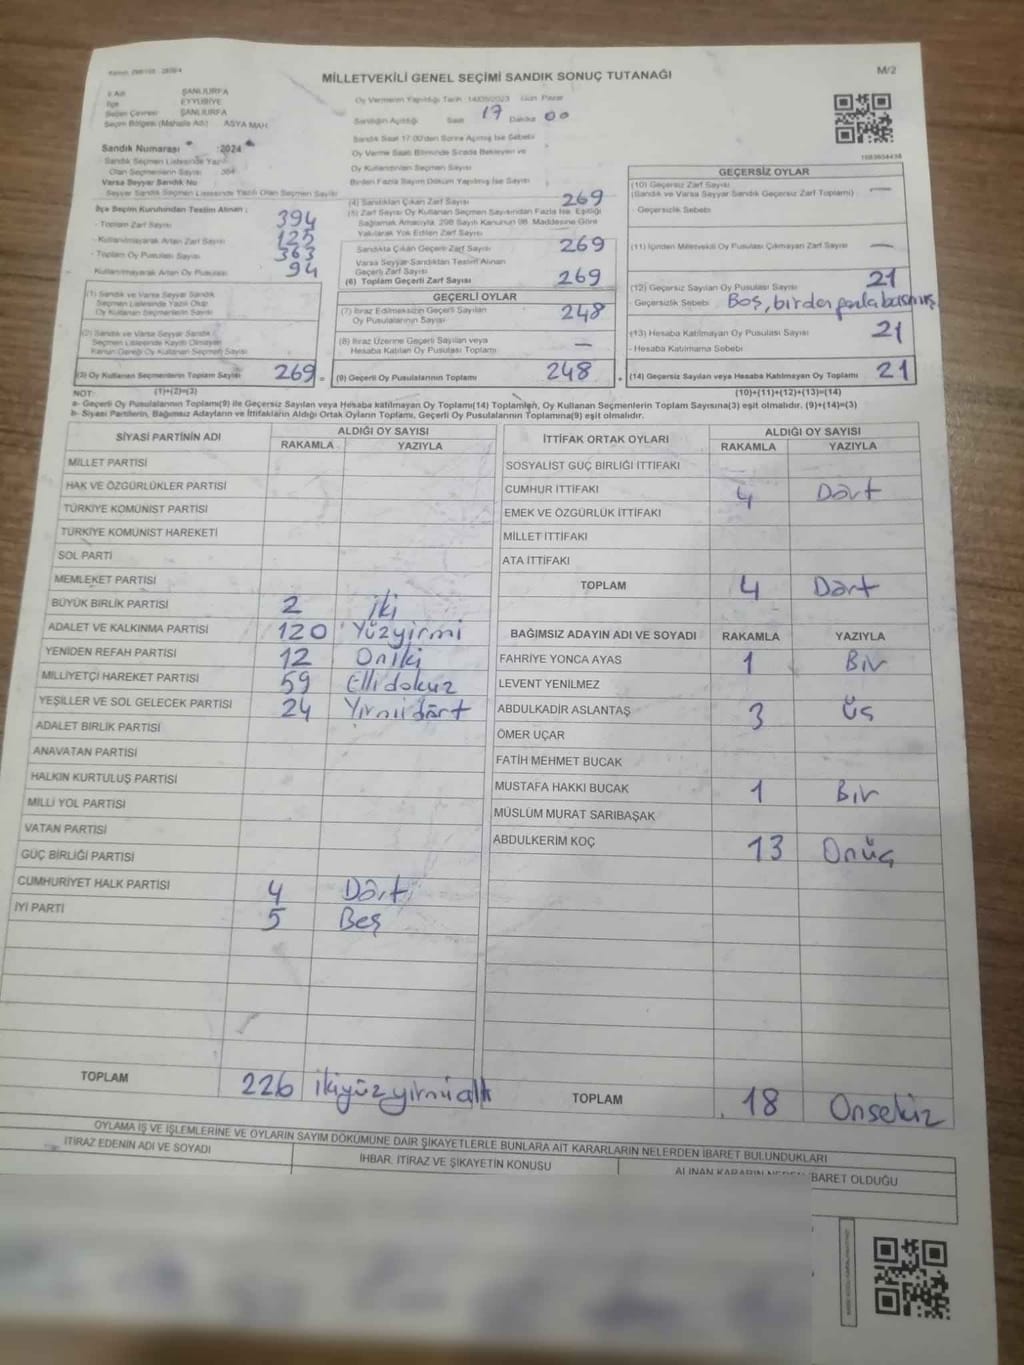 MİLLETVEKİLİ GENEL SEÇİMİ SANDIK SONUÇ TUTANAĞI
M/2
İl Adı ŞANLIURFA
İlçe EYYÜBİYE
Seçim Çevresi ŞANLIURFA
Seçim Bölgesi (Mahalle Adı) ASYA MAH.
Oy Vermenin Yapıldığı Tarih :14/05/2023 Gün Pazar
Sandığın Açıldığı Saat 17 Dakika 00
Sandık Numarası :2024
Sandık Saat 17.00'den Sonra Açılmış İse Sebebi
Varsa Seyyar Sandık No
Seyyar Sandık Seçmen Listesinde Yazılı Olan Seçmen Sayısı
İlçe Seçim Kurulundan Teslim Alınan :
- Toplam Zarf Sayısı 394
- Kullanılmayarak Artan Zarf Sayısı 125
- Toplam Oy Pusulası Sayısı 363
Kullanılmayarak Artan Oy Pusulası 94
(3) Oy Kullanan Seçmenlerin Toplam Sayısı 269
(1)+(2)=(3)
(4) Sandıktan Çıkan Zarf Sayısı 269
(5) Zarf Sayısı Oy Kullanan Seçmen Sayısından Fazla İse, Eşitliği
Sağlamak Amacıyla, 298 Sayılı Kanunun 98. Maddesine Göre
Yakılarak Yok Edilen Zarf Sayısı
Sandıkta Çıkan Geçerli Zarf Sayısı 269
Varsa Seyyar Sandıktan Teslim Alınan
Geçerli Zarf Sayısı
(6) Toplam Geçerli Zarf Sayısı 269
GEÇERLİ OYLAR
(7) İtiraz Edilmeksizin Geçerli Sayılan
Oy Pusulalarının Sayısı 248
(8) İtiraz Üzerine Geçerli Sayılan veya
Hesaba Katılan Oy Pusulası Toplamı —
(9) Geçerli Oy Pusulalarının Toplamı 248
GEÇERSİZ OYLAR
(10) Geçersiz Zarf Sayısı —
(Sandık ve Varsa Seyyar Sandık Geçersiz Zarf Toplamı)
- Geçersizlik Sebebi
(11) İçinden Milletvekili Oy Pusulası Çıkmayan Zarf Sayısı —
(12) Geçersiz Sayılan Oy Pusulası Sayısı 21
- Geçersizlik Sebebi Boş, birden fazla basılmış
(13) Hesaba Katılmayan Oy Pusulası Sayısı 21
- Hesaba Katılmama Sebebi
(14) Geçersiz Sayılan veya Hesaba Katılmayan Oy Toplamı 21
(10)+(11)+(12)+(13)=(14)
NOT:
a- Geçerli Oy Pusulalarının Toplamı(9) ile Geçersiz Sayılan veya Hesaba katılmayan Oy Toplamı(14) Toplamları, Oy Kullanan Seçmenlerin Toplam Sayısına(3) eşit olmalıdır. (9)+(14)=(3)
b- Siyasi Partilerin, Bağımsız Adayların ve İttifakların Aldığı Ortak Oyların Toplamı, Geçerli Oy Pusulalarının Toplamına(9) eşit olmalıdır.
SİYASİ PARTİNİN ADI ALDIĞI OY SAYISI
RAKAMLA YAZIYLA
MİLLET PARTİSİ
HAK VE ÖZGÜRLÜKLER PARTİSİ
TÜRKİYE KOMÜNİST PARTİSİ
TÜRKİYE KOMÜNİST HAREKETİ
SOL PARTİ
MEMLEKET PARTİSİ
BÜYÜK BİRLİK PARTİSİ 2 iki
ADALET VE KALKINMA PARTİSİ 120 Yüzyirmi
YENİDEN REFAH PARTİSİ 12 Oniki
MİLLİYETÇİ HAREKET PARTİSİ 59 Ellidokuz
YEŞİLLER VE SOL GELECEK PARTİSİ 24 Yirmidört
ADALET BİRLİK PARTİSİ
ANAVATAN PARTİSİ
HALKIN KURTULUŞ PARTİSİ
MİLLİ YOL PARTİSİ
VATAN PARTİSİ
GÜÇ BİRLİĞİ PARTİSİ
CUMHURİYET HALK PARTİSİ 4 Dört
İYİ PARTİ 5 Beş
TOPLAM 226 ikiyüzyirmialtı
İTTİFAK ORTAK OYLARI ALDIĞI OY SAYISI
RAKAMLA YAZIYLA
SOSYALİST GÜÇ BİRLİĞİ İTTİFAKI
CUMHUR İTTİFAKI 4 Dört
EMEK VE ÖZGÜRLÜK İTTİFAKI
MİLLET İTTİFAKI
ATA İTTİFAKI
TOPLAM 4 Dört
BAĞIMSIZ ADAYIN ADI VE SOYADI RAKAMLA YAZIYLA
FAHRİYE YONCA AYAS 1 Bir
LEVENT YENİLMEZ
ABDULKADİR ASLANTAŞ 3 üç
ÖMER UÇAR
FATİH MEHMET BUCAK
MUSTAFA HAKKI BUCAK 1 Bir
MÜSLÜM MURAT SARIBAŞAK
ABDULKERİM KOÇ 13 Onüç
TOPLAM 18 Onsekiz
OYLAMA İŞ VE İŞLEMLERİNE VE OYLARIN SAYIM DÖKÜMÜNE DAİR ŞİKAYETLERLE BUNLARA AİT KARARLARIN NELERDEN İBARET BULUNDUKLARI
İTİRAZ EDENİN ADI VE SOYADI
İHBAR, İTİRAZ VE ŞİKAYETİN KONUSU
ALINAN KARARIN NEDEN İBARET OLDUĞU